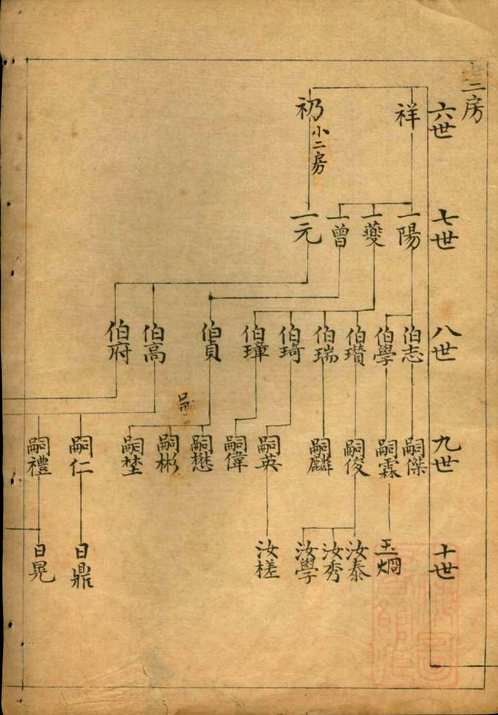 二房
六世
祥
礽
小二房
七世
一陽
一夔
一曾
一元
八世
伯志
伯學
伯瓚
伯瑞
伯琦
伯瑋
伯貞
伯高
伯府
九世
嗣傑
嗣霖
嗣俊
嗣麟
嗣英
嗣偉
嗣懋
嗣彬
嗣埜
嗣仁
嗣禮
十世
玉烱
汝泰
汝秀
汝學
汝槎
日鼎
日晃